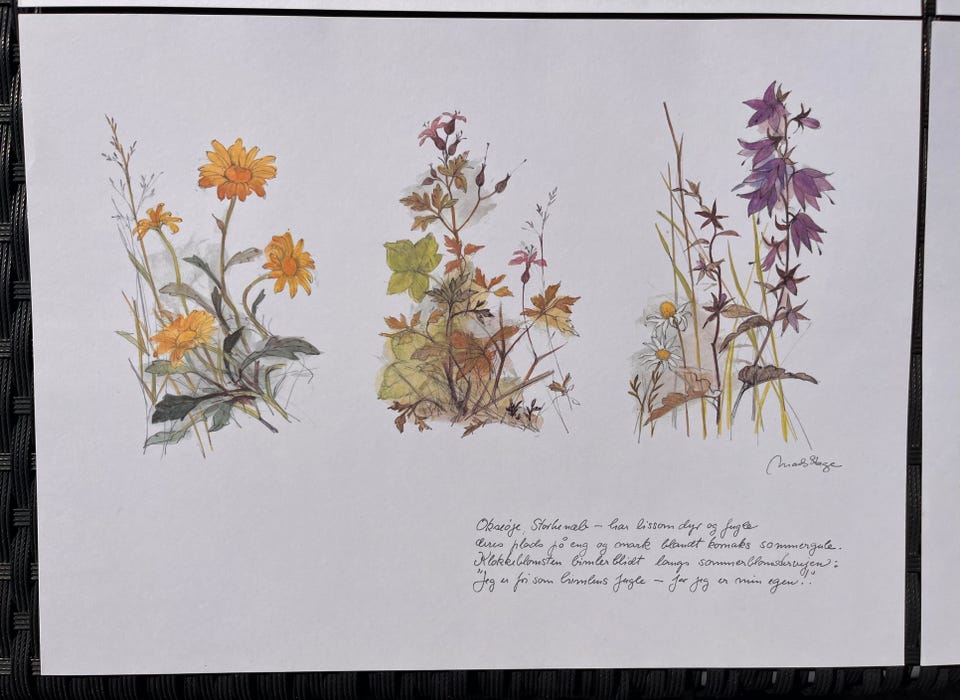 Mads Stage
Okseøje, Storkenæb – har lissom dyr og fugle
deres plads på eng og mark blandt kornaks sommergule.
Klokkeblomsten bimler blidt langs sommerblomstervejen:
"Jeg er fri som himlens fugle – for jeg er min egen!"